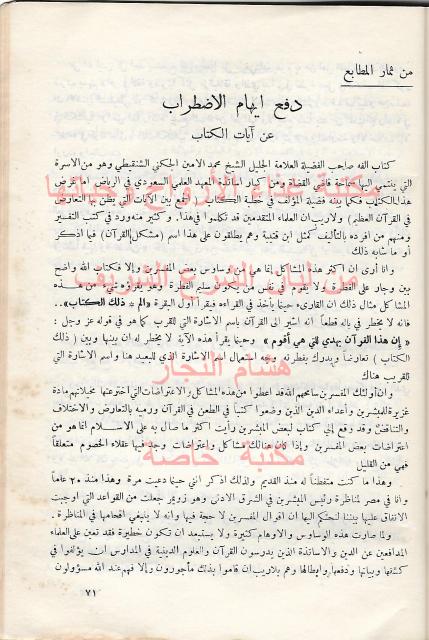 من ثمار المطابع
دفع ايهام الاضطراب
عن آيات الكتاب
كتاب الفه صاحب الفضيلة العلامة الجليل الشيخ محمد الامين الجكني الشنقيطي وهو من الاسرة
التي ينتمي اليها سماحة قاضي القضاة ومن كبار اساتذة المعهد العلمي السعودي في الرياض اما غرض
هذا الكتاب فكما بينه فضيلة المؤلف في خطبة الكتاب ( الجمع بين الآيات التي يظن بها التعارض
في القرآن العظيم ) ولا ريب ان العلماء المتقدمين قد تكلموا في هذا. و كثير منه ورد في كتب التفسير
ومنهم من افرده بالتأليف كمثل ابن قتيبة وهم يطلقون على هذا اسم (مشكل القرآن) فيما اذكر
أو ما شابه ذلك
وانا أرى ان اكثر هذا المشاكل انما هي من وساوس بعض المفسرين والا فكتاب الله واضح
بين وجار على الفطرة ولا يقوم في نفس من يكون سليم الفطرة وهو يقرؤه شيء من هذه
المشاكل مثال ذلك ان القارىء حينما يأخذ في القراءه فيقرأ أول البقرة «الم * ذلك الكتاب» ..
فانه لا يخطر في باله قطعاً انه اشير الى القرآن باسم الاشارة التي للقرب كما هو في قوله عز وجل :
« إن هذا القرآن يهدي للتي هي أقوم » وحينما يقرأ هذه الآية لا يخطر له ان بينها وبين ( ذلك
الكتاب ) تعارضاً ويدرك بفطرته وجه استعمال اسم الاشارة الذي للبعيد هنا واسم الاشارة التي
للقريب هناك
وان اولئك المفسرين سامحهم الله قد اعطوا من هذه المشاكل والاعتراضات التي اخترعتها مخيلاتهم مادة
غزيرة للمبشرين وأعداء الدين الذين وضعوا كتباً في الطعن في القرآن ورميه بالتعارض والاختلاف
والتناقض وقد وقع إلي كتاب لبعض المبشرين رأيت اكثر ما صال به على الاسلام انما هو من
اعتراضات بعض المفسرين وإذا كان هنالك مشاكل واعتراضات وجد فيها عقلاء الخصوم متعلقاً
فهي من القليل
وهذا ما كنت متفطناً له منذ القديم ولذلك اذكر انني حينما دعيت مرة وهذا منذ ٣٠ عاماً
وانا في مصر لمناظرة رئيس المبشرين في الشرق الادنى وهو زويمر جعلت من القواعد التي اوجبت
الاتفاق عليها بيننا لنحتكم اليها ان اقوال المفسرين لا حجة فيها وانه لا ينبغي اقحامها في المناظرة .
ولما صارت هذه الوساوس والاوهام كثيرة ولا يستبعد ان تكون خطيرة فقد تعين على العلماء
المدافعين عن الدين والاساتذة الذين يدرسون القرآن والعلوم الدينية في المدارس ان يؤلفوا في
كشفها وبيانها ودفعها وابطالها وهم بلا ريب ان قاموا بذلك مأجورون وإلا فهم عند الله مسؤولون
٧١
مكتبة غذاء الأرواح وحياتها
من لبان الشرع الشريف
هشام النجار
مكتبة خاصة